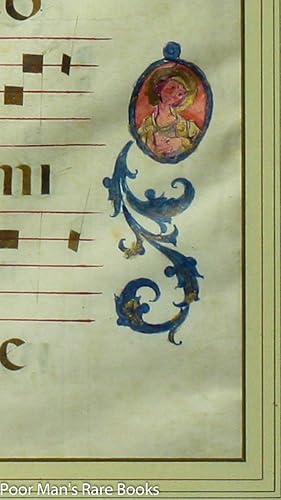 o
mi
c
Poor Man's Rare Books